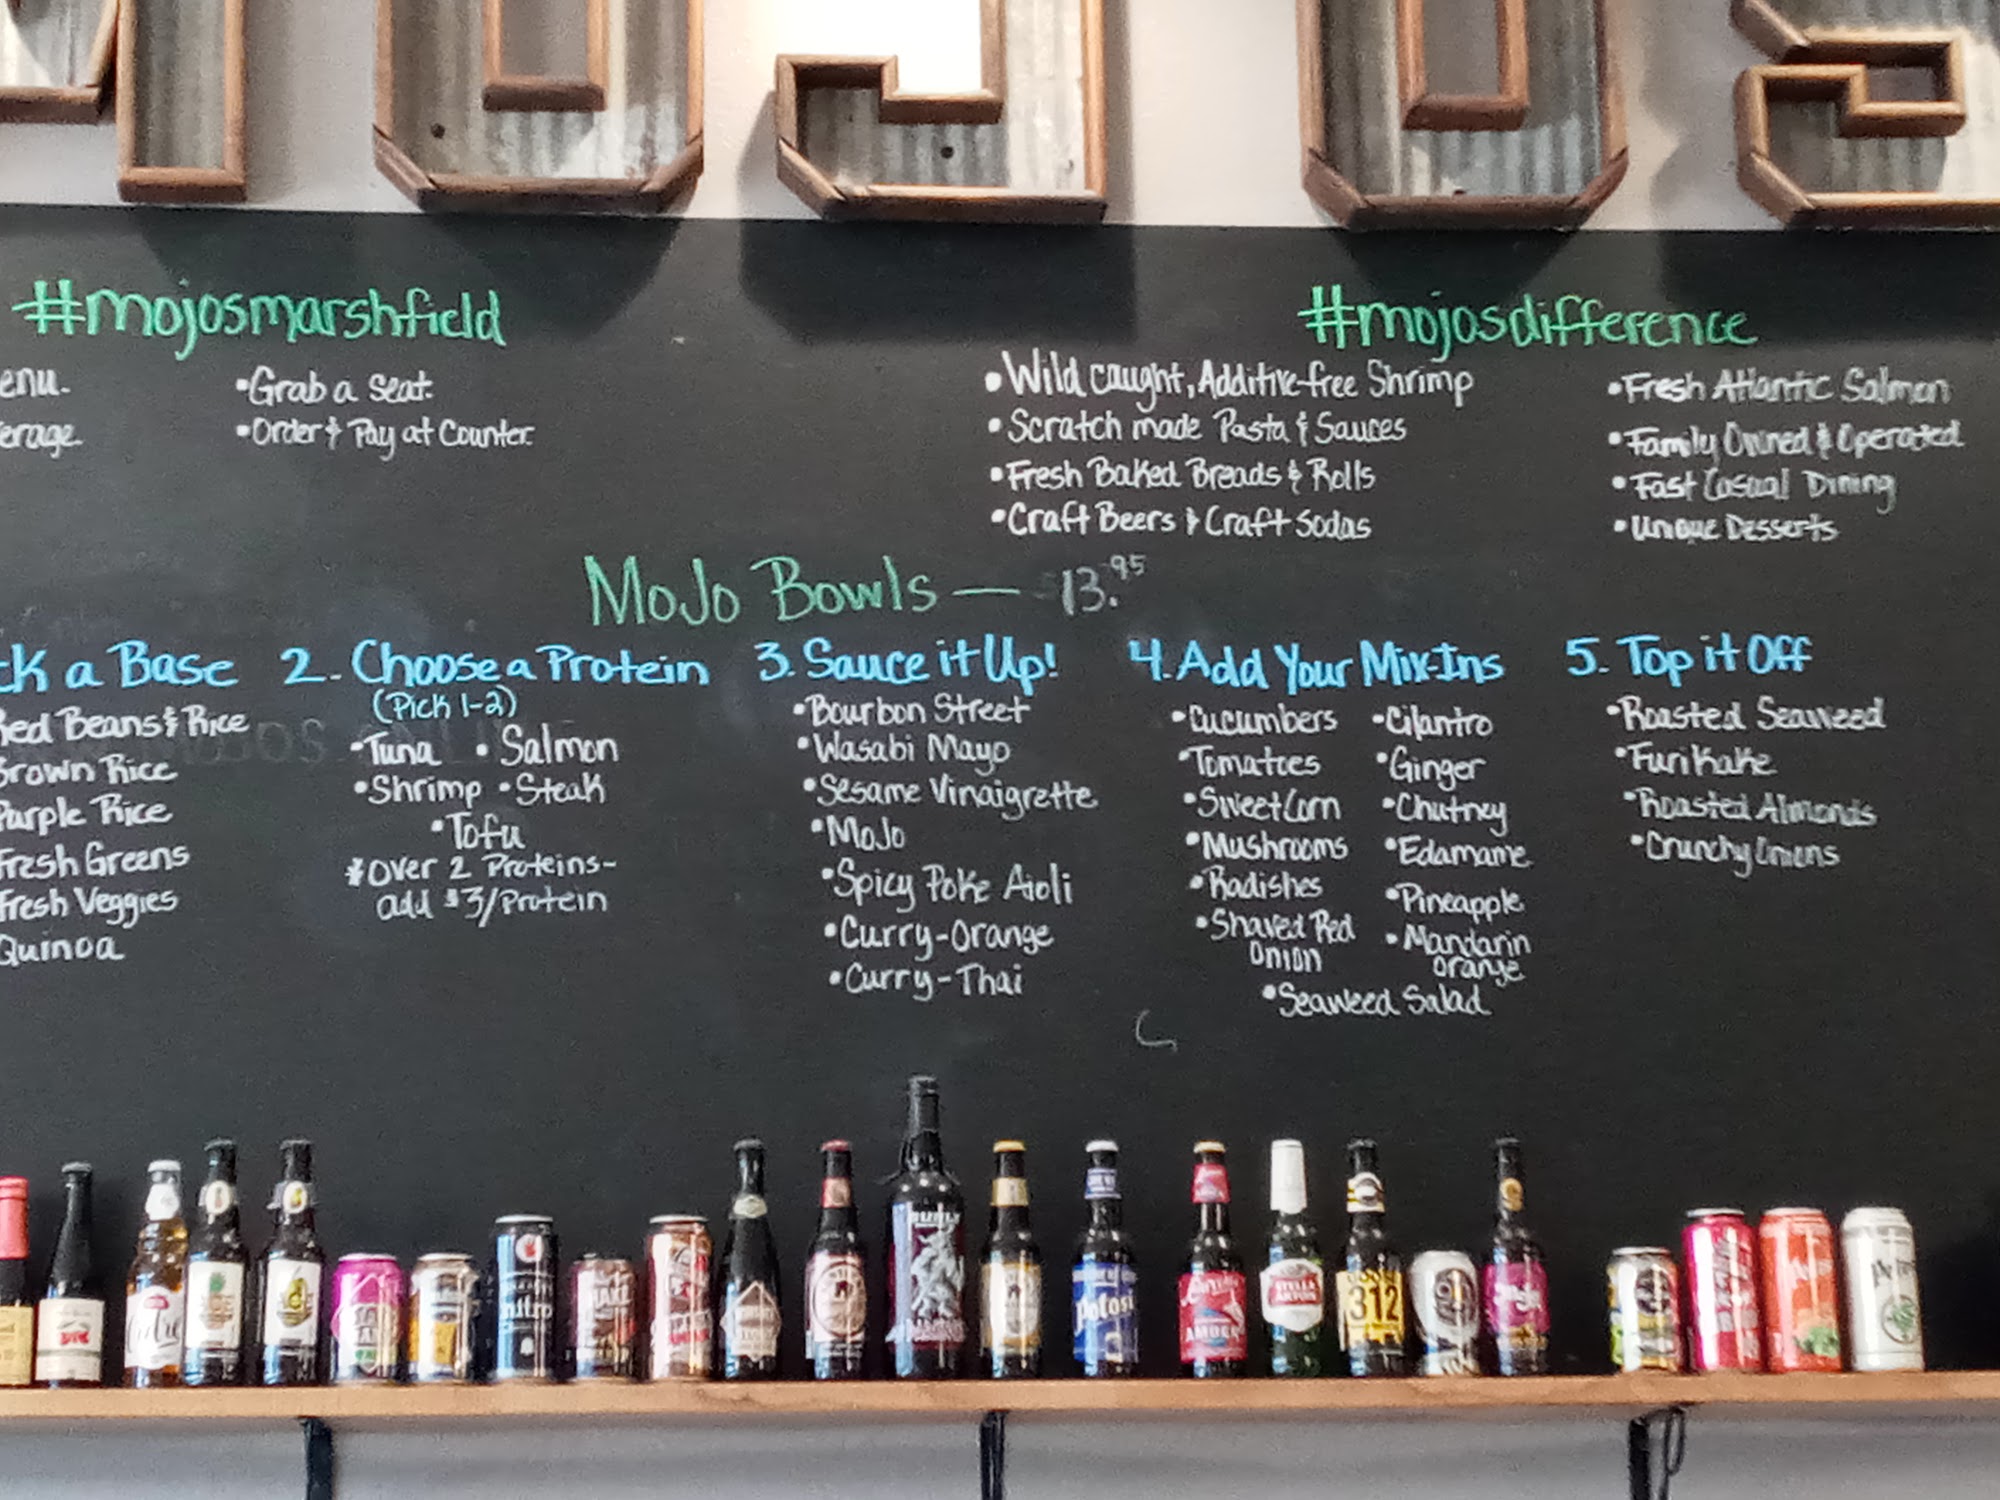 #mojosmarshfield
enu.
erage.
•Grab a seat.
•Order & Pay at Counter.
#mojosdifference
•Wild caught, Additive-free Shrimp
•Scratch made Pasta & Sauces
•Fresh Baked Breads & Rolls
•Craft Beers & Craft Sodas
•Fresh Atlantic Salmon
•Family Owned & Operated
•Fast Casual Dining
•Unique Desserts
MoJo Bowls — 13.95
ck a Base
Red Beans & Rice
Brown Rice
Purple Rice
Fresh Greens
Fresh Veggies
Quinoa
2. Choose a Protein
(Pick 1-2)
•Tuna •Salmon
•Shrimp •Steak
•Tofu
*Over 2 Proteins-
add $3/Protein
3. Sauce it Up!
•Bourbon Street
•Wasabi Mayo
•Sesame Vinaigrette
•MoJo
•Spicy Poke Aioli
•Curry-Orange
•Curry-Thai
4. Add Your Mix-Ins
•Cucumbers
•Tomatoes
•Sweet Corn
•Mushrooms
•Radishes
•Shaved Red
Onion
•Cilantro
•Ginger
•Chutney
•Edamame
•Pineapple
•Mandarin
Orange
•Seaweed Salad
5. Top it Off
•Roasted Seaweed
•Furikake
•Roasted Almonds
•Crunchy Onions
nitro
Potosi
AMBER
STELLA
ARTOIS
312